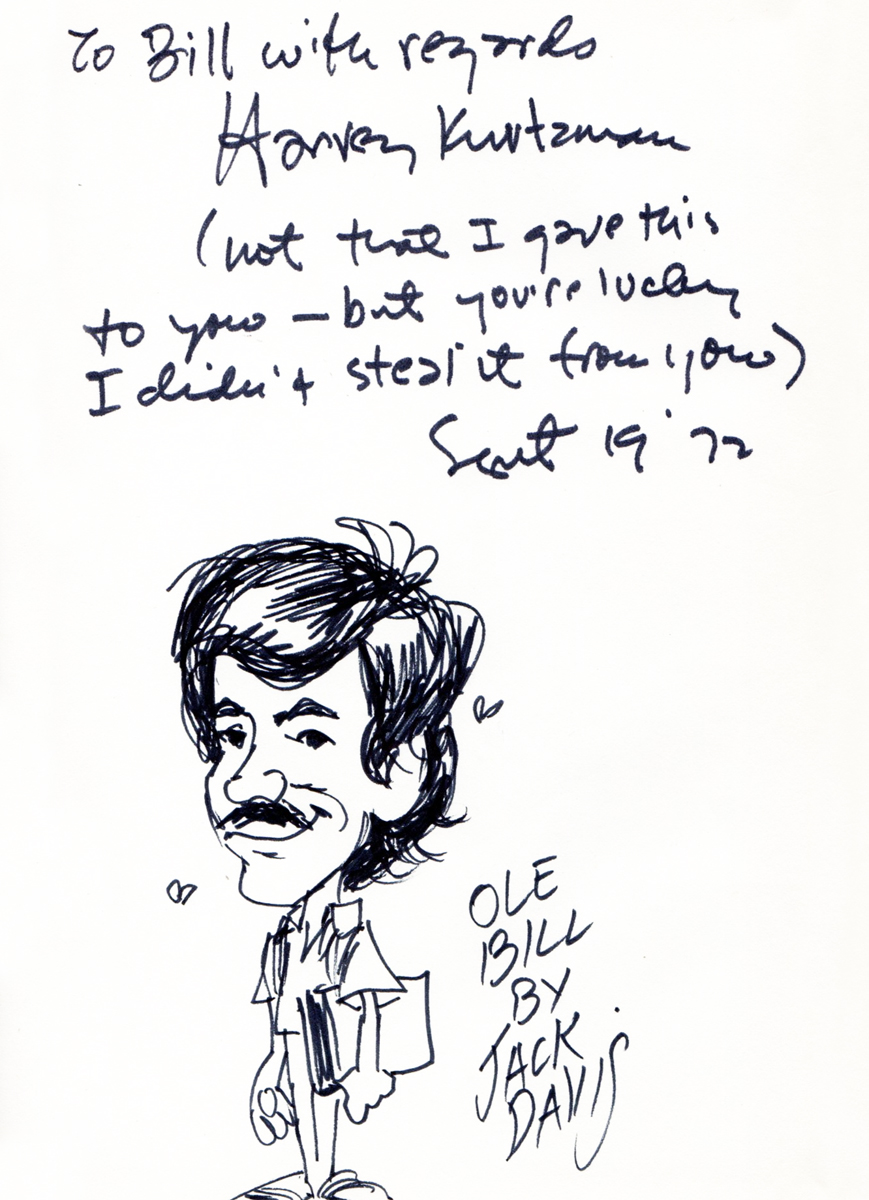 To Bill with regards
Harvey Kurtzman
(not that I gave this
to you — but you're lucky
I didn't steal it from you)
Sept 19 '72
OLE
BILL
BY
JACK
DAVIS